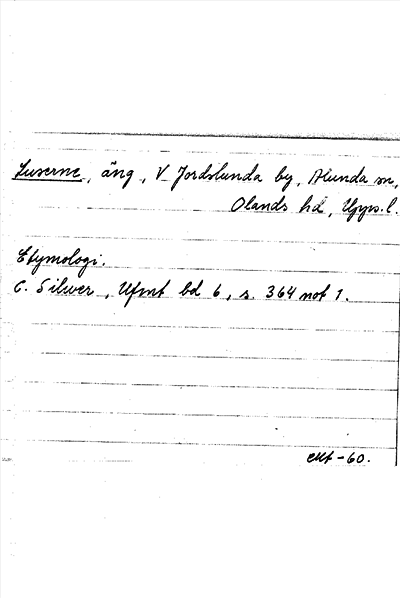 Luserne, äng, V Jordslunda by, Alunda sn,
Olands hd, Upps. l.
Etymologi.
C. Silwer, Ufmt bd 6, s. 364 not 1.
-60.